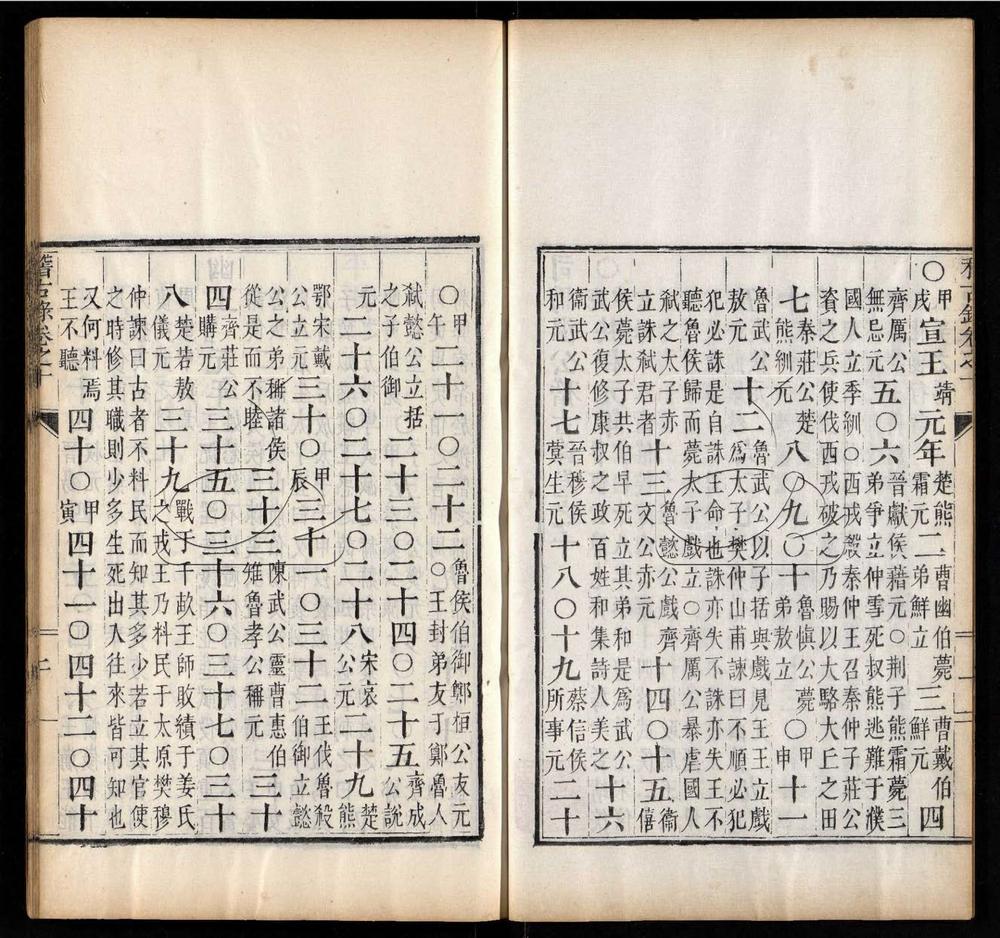 ○甲戌宣王靖元年楚熊霜元二曹幽伯薨弟鮮立三曹戴伯鮮元四
齊厲公無忌元五○六晉獻侯藉元○荆子熊霜薨三弟爭立仲雪死叔熊逃難于濮
國人立季紃○西戎殺秦仲王召秦仲子莊公
資之兵使伐西戎破之乃賜以大駱犬丘之田
七秦莊公楚熊紃元八○九○十魯慎公薨弟敖立○甲申十一
魯武公敖元十二魯武公以子括與戲見王王立戲爲太子樊仲山甫諫曰不順必犯
犯必誅是自誅王命也誅亦失不誅亦失王不
聽魯侯歸而薨太子戲立○齊厲公暴虐國人
弑之太子赤立誅弑君者十三魯懿公戲齊文公赤元十四○十五衞僖
侯薨太子共伯早死立其弟和是爲武公
武公復修康叔之政百姓和集詩人美之十六
衞武公和元十七晉穆侯蕡生元十八○十九蔡信侯所事元二十
○甲午二十一○二十二魯侯伯御鄭桓公友元○王封弟友于鄭魯人
弑懿公立括之子伯御二十三○二十四○二十五齊成公說
元二十六○二十七○二十八宋哀公元二十九楚熊
鄂宋戴公立元三十○甲辰三十一○三十二王伐魯殺伯御立懿
公之弟稱諸侯從是而不睦三十三陳武公靈曹惠伯雉魯孝公稱元三十
四齊莊公購元三十五○三十六○三十七○三十
八楚若敖熊儀元三十九戰于千畝王師敗績于姜氏之戎王乃料民于太原樊穆
仲諫曰古者不料民而知其多少若立其官使
之時修其職則少多生死出人往來皆可知也
又何料焉王不聽四十○甲寅四十一○四十二○四十
稽古錄卷之十